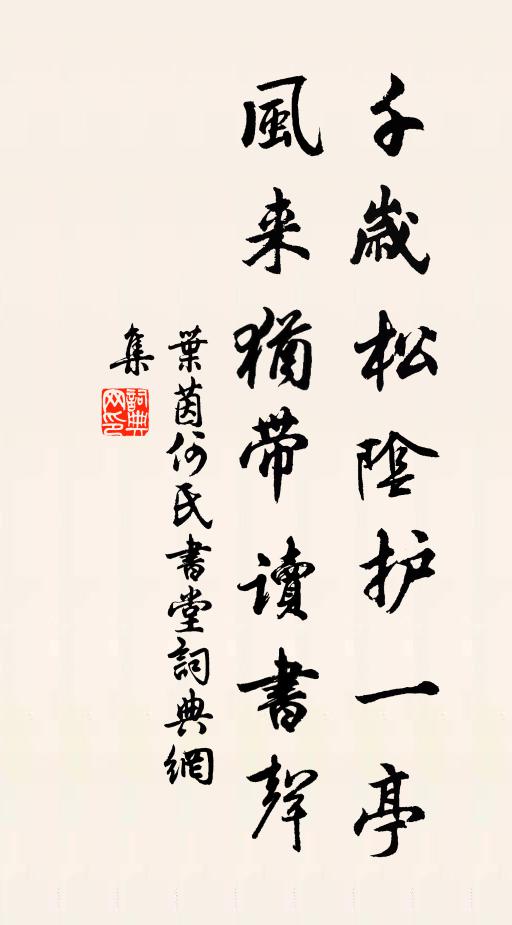 千歲松陰护一亭
風来猶带讀書聲
葉茵何氏書堂詞典網
集
詞典网印